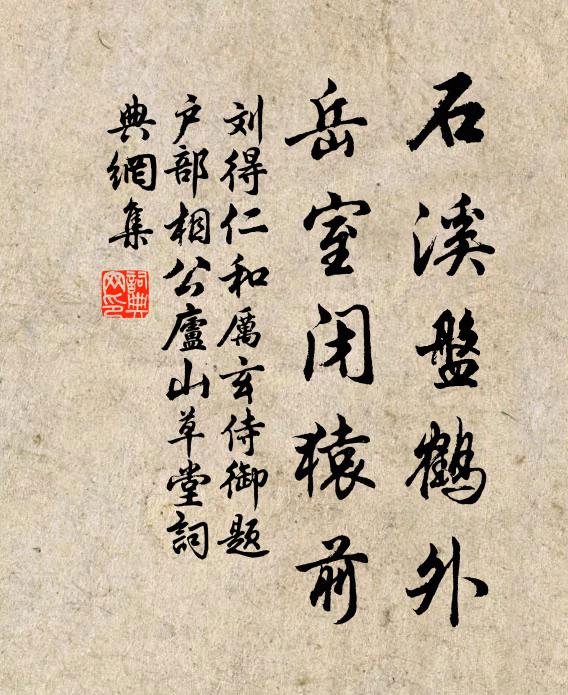 石溪盤鶴外
岳室闭猿前
刘得仁和厲玄侍御题
户部相公廬山草堂詞
典網集
詞典網印